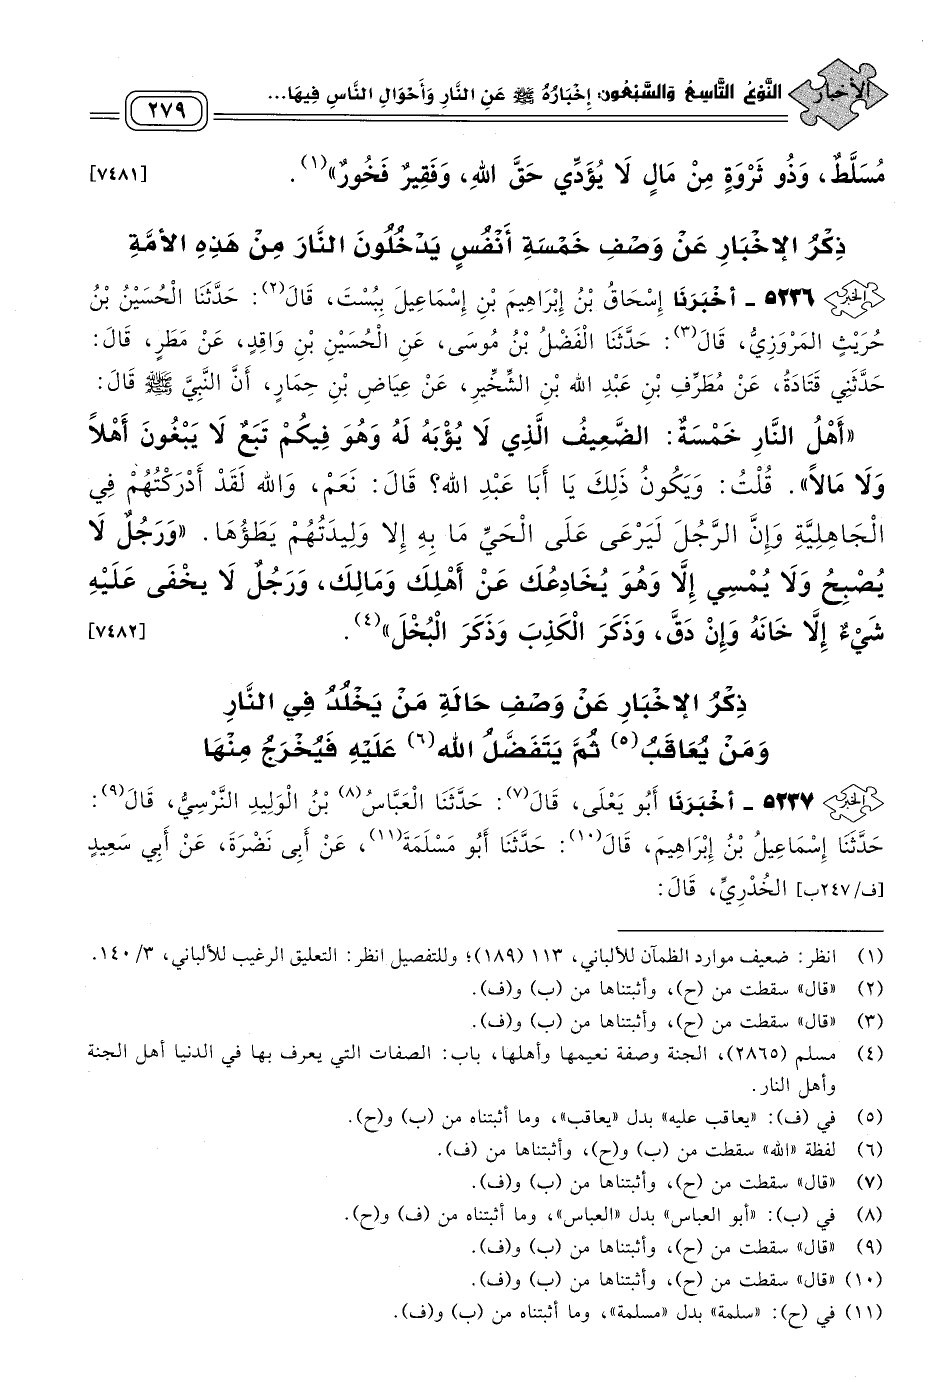 الأخبار النَّوْعُ التَّاسِعُ وَالسَّبْعُون: إِخْبَارُهُ ﷺ عَنِ النَّارِ وَأَحْوَالِ النَّاسِ فِيهَا...
٢٧٩
مُسَلَّطٌ، وَذُو ثَرْوَةٍ مِنْ مَالٍ لَا يُؤَدِّي حَقَّ اللهِ، وَفَقِيرٌ فَخُورٌ»(١). [٧٤٨١]
ذِكْرُ الإِخْبَارِ عَنْ وَصْفِ خَمْسَةِ أَنْفُسٍ يَدْخُلُونَ النَّارَ مِنْ هَذِهِ الأُمَّةِ
٥٢٣٦ - أَخْبَرَنَا إِسْحَاقُ بْنُ إِبْرَاهِيمَ بْنِ إِسْمَاعِيلَ بِبُسْتَ، قَالَ(٢): حَدَّثَنَا الْحُسَيْنُ بْنُ
حُرَيْثٍ المَرْوَزِيُّ، قَالَ(٣): حَدَّثَنَا الْفَضْلُ بْنُ مُوسَى، عَنِ الْحُسَيْنِ بْنِ وَاقِدٍ، عَنْ مَطَرٍ، قَالَ:
حَدَّثَنِي قَتَادَةُ، عَنْ مُطَرِّفِ بْنِ عَبْدِ الله بْنِ الشِّخِّيرِ، عَنْ عِيَاضِ بْنِ حِمَارٍ، أَنَّ النَّبِيَّ ﷺ قَالَ:
«أَهْلُ النَّارِ خَمْسَةٌ: الضَّعِيفُ الَّذِي لَا يُؤْبَهُ لَهُ وَهُوَ فِيكُمْ تَبَعٌ لَا يَبْغُونَ أَهْلاً
وَلَا مَالاً». قُلْتُ: وَيَكُونُ ذَلِكَ يَا أَبَا عَبْدِ الله؟ قَالَ: نَعَمْ، وَالله لَقَدْ أَدْرَكْتُهُمْ فِي
الْجَاهِلِيَّةِ وَإِنَّ الرَّجُلَ لَيَرْعَى عَلَى الْحَيِّ مَا بِهِ إِلا وَلِيدَتُهُمْ يَطَؤُهَا. «وَرَجُلٌ لَا
يُصْبِحُ وَلَا يُمْسِي إِلَّا وَهُوَ يُخَادِعُكَ عَنْ أَهْلِكَ وَمَالِكَ، وَرَجُلٌ لَا يخْفَى عَلَيْهِ
شَيْءٌ إِلَّا خَانَهُ وَإِنْ دَقَّ، وَذَكَرَ الْكَذِبَ وَذَكَرَ الْبُخْلَ»(٤). [٧٤٨٢]
ذِكْرُ الإِخْبَارِ عَنْ وَصْفِ حَالَةِ مَنْ يَخْلُدُ فِي النَّارِ
وَمَنْ يُعَاقَبُ(٥) ثُمَّ يَتَفَضَّلُ الله(٦) عَلَيْهِ فَيُخْرَجُ مِنْهَا
٥٢٣٧ - أَخْبَرَنَا أَبُو يَعْلَى، قَالَ(٧): حَدَّثَنَا الْعَبَّاسُ(٨) بْنُ الْوَلِيدِ النَّرْسِيُّ، قَالَ(٩):
حَدَّثَنَا إِسْمَاعِيلُ بْنُ إِبْرَاهِيمَ، قَالَ(١٠): حَدَّثَنَا أَبُو مَسْلَمَةَ(١١)، عَنْ أَبِى نَضْرَةَ، عَنْ أَبِي سَعِيدٍ
[ف/٢٤٧ب] الْخُدْرِيِّ، قَالَ:
(١) انظر: ضعيف موارد الظمآن للألباني، ١١٣ (١٨٩)؛ وللتفصيل انظر: التعليق الرغيب للألباني، ٣/ ١٤٠.
(٢) «قال» سقطت من (ح)، وأثبتناها من (ب) و(ف).
(٣) «قال» سقطت من (ح)، وأثبتناها من (ب) و(ف).
(٤) مسلم (٢٨٦٥)، الجنة وصفة نعيمها وأهلها، باب: الصفات التي يعرف بها في الدنيا أهل الجنة
وأهل النار.
(٥) في (ف): «يعاقب عليه» بدل «يعاقب»، وما أثبتناه من (ب) و(ح).
(٦) لفظة «الله» سقطت من (ب) و(ح)، وأثبتناها من (ف).
(٧) «قال» سقطت من (ح)، وأثبتناها من (ب) و(ف).
(٨) في (ب): «أبو العباس» بدل «العباس»، وما أثبتناه من (ف) و(ح).
(٩) «قال» سقطت من (ح)، وأثبتناها من (ب) و(ف).
(١٠) «قال» سقطت من (ح)، وأثبتناها من (ب) و(ف).
(١١) في (ح): «سلمة» بدل «مسلمة»، وما أثبتناه من (ب) و(ف).